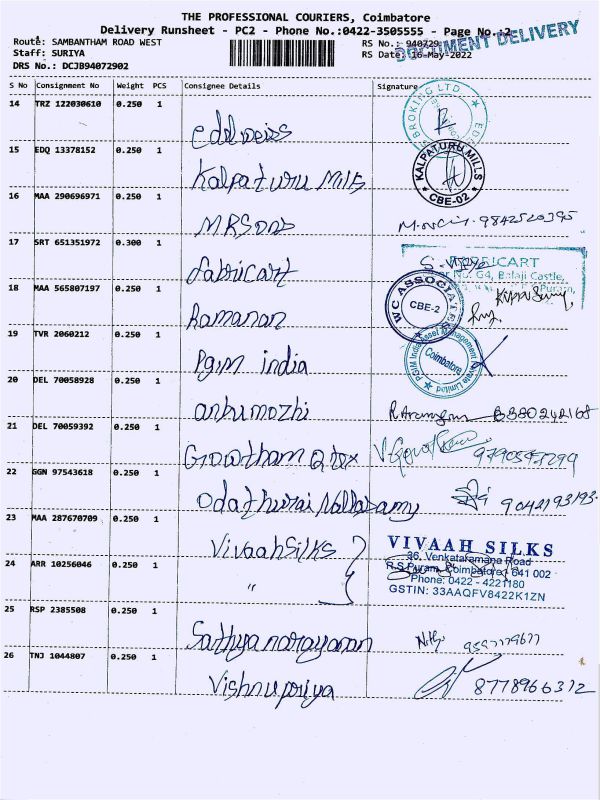 THE PROFESSIONAL COURIERS, Coimbatore
Delivery Runsheet - PC2 - Phone No.:0422-3505555 - Page No.:2
Route: SAMBANTHAM ROAD WEST
RS No.: 940729
DOCUMENT DELIVERY
Staff: SURIYA
RS Date: 16-May-2022
DRS No.: DCJB94072902
S No Consignment No Weight PCS Consignee Details Signature
14 TRZ 122030610 0.250 1
Edelweiss
BROKING LTD.
15 EDQ 13378152 0.250 1
Kalpaturu Mills
KALPATURU MILLS
CBE-02
16 MAA 290696971 0.250 1
MRSons
9842520395
17 SRT 651351972 0.300 1
fabricart
FABRICART
No. G4, Balaji Castle,
Puram,
18 MAA 565807197 0.250 1
Ramanan
W C ASSOCIATES
CBE-2
19 TVR 2060212 0.250 1
Pgim india
PGIM India Asset Management Private Limited
Coimbatore
20 DEL 70058928 0.250 1
anbumozhi
21 DEL 70059392 0.250 1
Gowtham
22 GGN 97543618 0.250 1
Odathurai Nallasamy
23 MAA 287670709 0.250 1
Vivaah Silks
VIVAAH SILKS
36, Venkataramana Road
R.S.Puram, Coimbatore - 641 002
Phone: 0422 - 4221180
GSTIN: 33AAQFV8422K1ZN
24 ARR 10256046 0.250 1
"
25 RSP 2385508 0.250 1
Sathyanarayanan
26 TNJ 1044807 0.250 1
Vishnupriya
8778966312